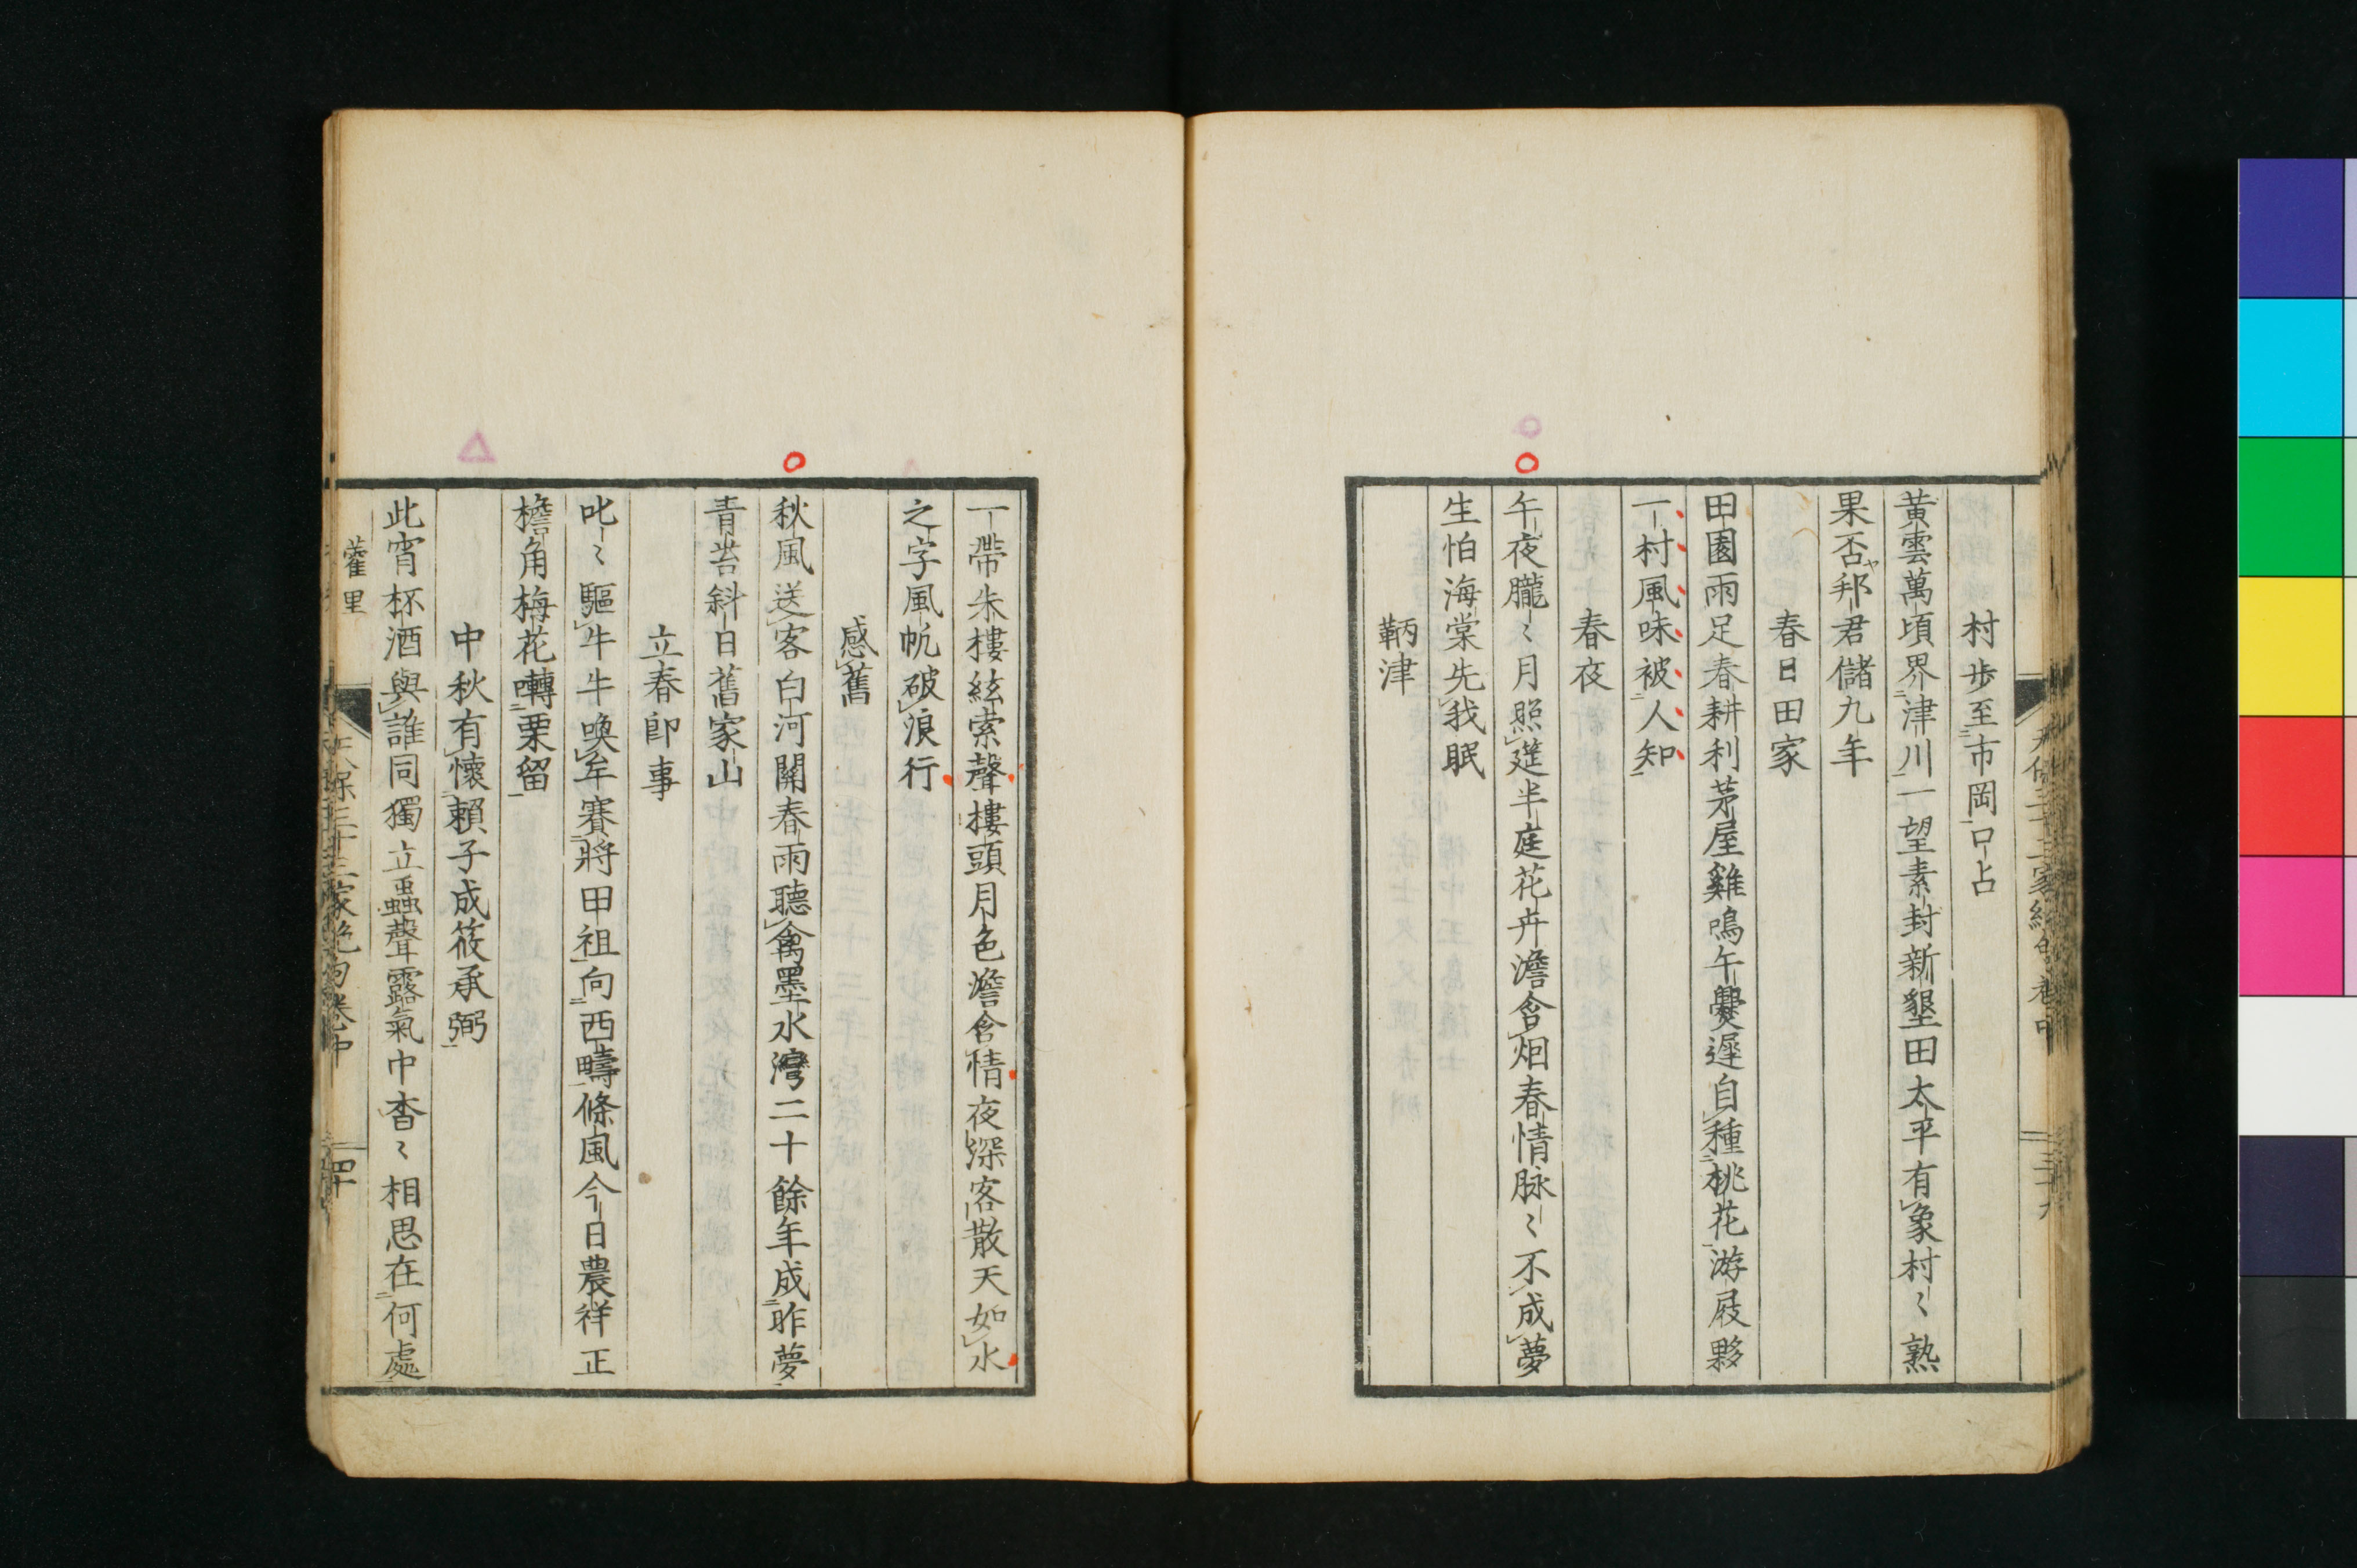 村歩至市岡口占
黄雲萬頃界津川一望素封新墾田太平有象村〻熟
果否邦君儲九年
春日田家
田園雨足春耕利茅屋雞鳴午爨遲自種桃花游屐夥
一村風味被人知
春夜
午夜朧〻月照筵半庭花卉澹含烟春情脉〻不成夢
生怕海棠先我眠
鞆津
一帶朱樓絃索聲樓頭月色澹含情夜深客散天如水
之字風帆破浪行
感舊
秋風送客白河關春雨聽禽墨水灣二十餘年成昨夢
青苔斜日舊家山
立春卽事
叱〻驅牛牛喚牟賽將田祖向西疇條風今日農祥正
檐角梅花囀栗留
中秋有懷賴子成筱承弼
此宵杯酒與誰同獨立蟲聲露氣中杳〻相思在何處
藿里
天保三十三家絶句卷中
四十